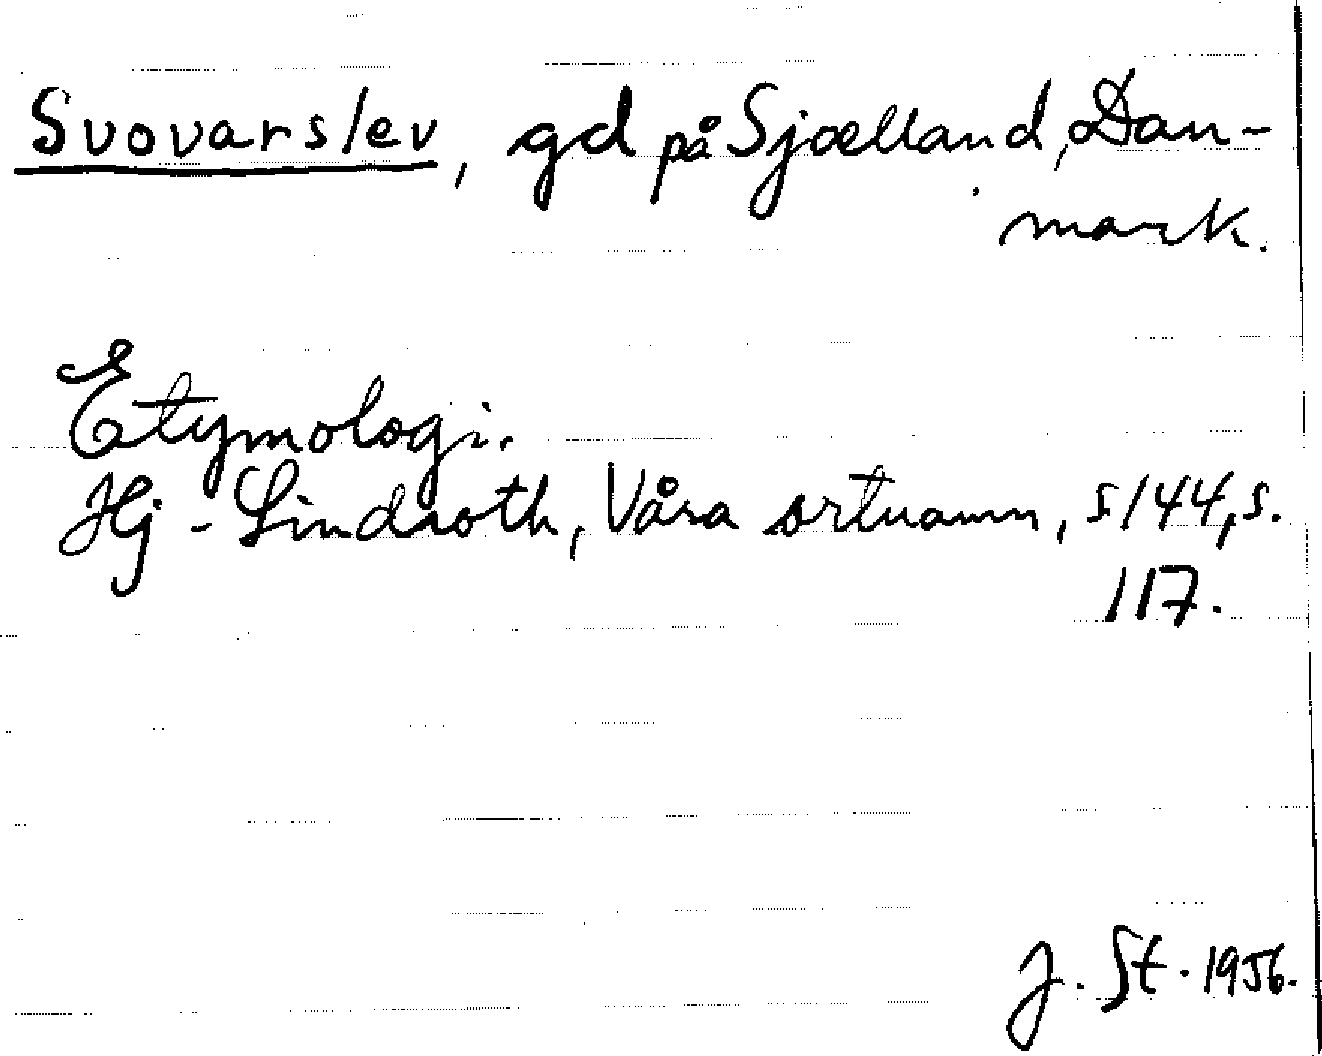 Svovarslev, gd på Sjælland, Dan-
mark.
Etymologi.
Hj. Lindroth, Våra ortnamn, s 144, s.
117.
J. St. 1956.